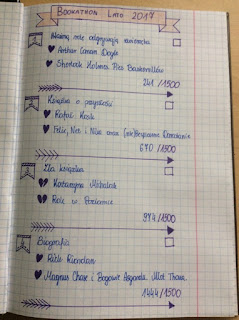 BOOKATHON LATO 2017
Ważną rolę odgrywają zwierzęta
Arthur Conan Doyle
Sherlock Holmes: Pies Baskerville'ów
241/1500
Książka o przyszłości
Rafał Kosik
Felix, Net i Nika oraz (nie)Bezpieczne Dorastanie
670/1500
Zła książka
Katarzyna Michalak
Rok w Poziomce
974/1500
Biografia
Rick Riordan
Magnus Chase i Bogowie Asgardu. Młot Thora
1444/1500